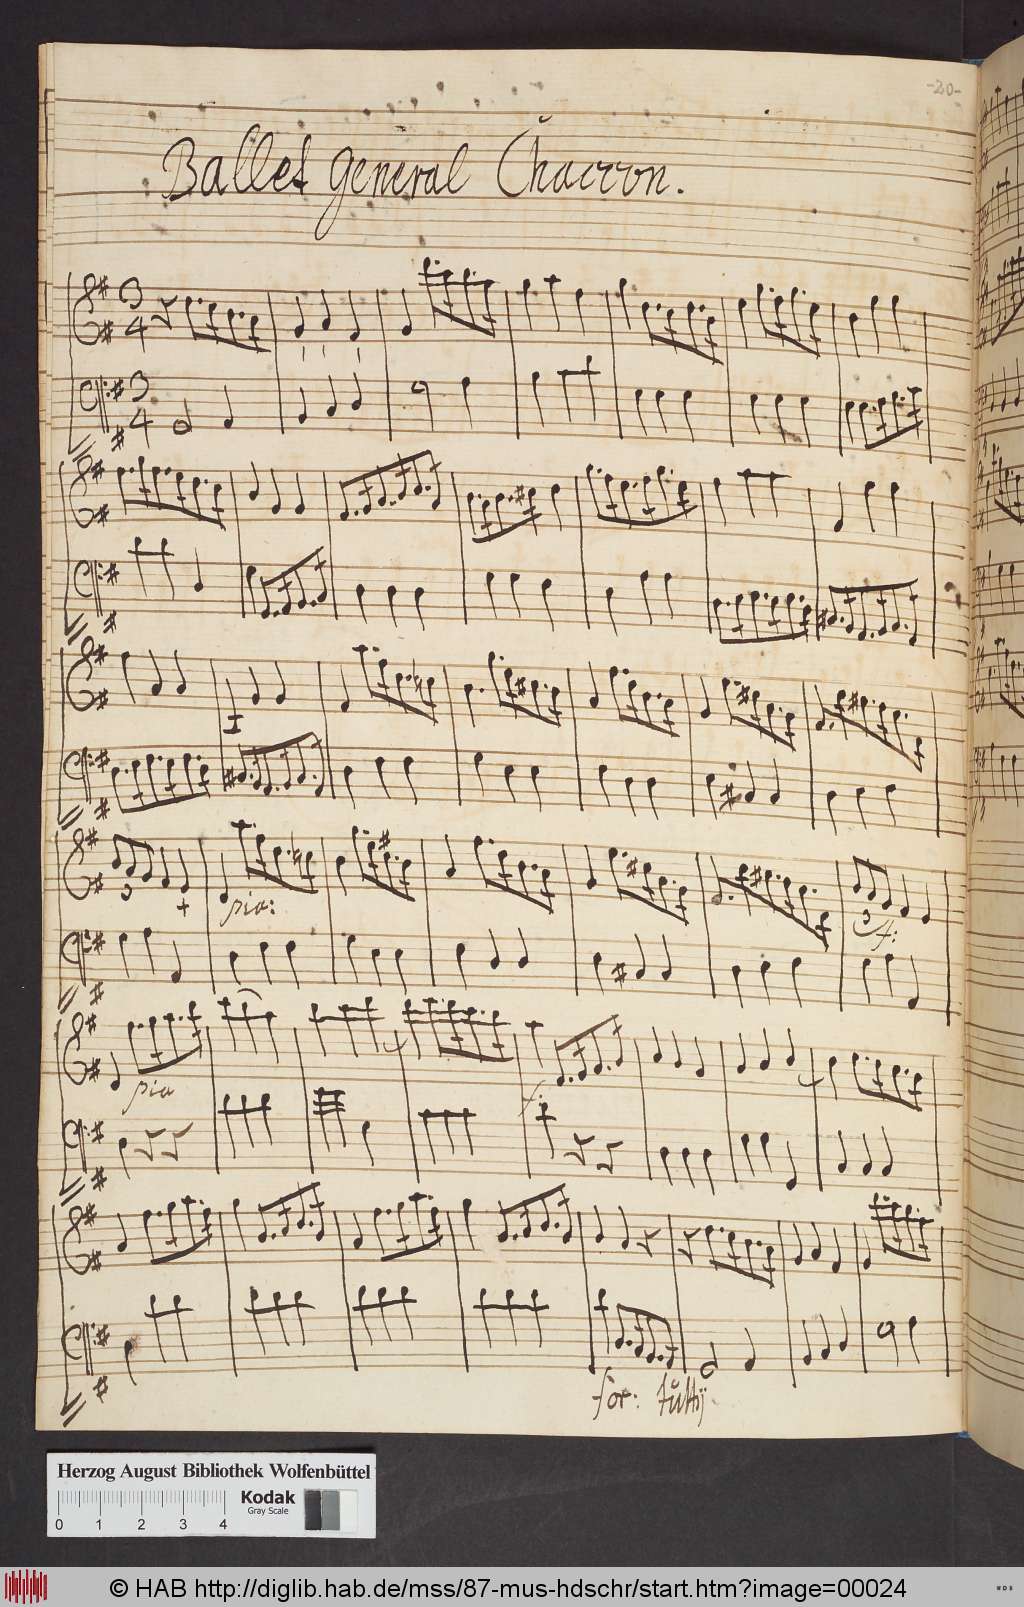 -20-
Ballet general Chaccon.
3
4
3
4
3
pia:
3
f:
pia
f:
for: tuttij
Herzog August Bibliothek Wolfenbüttel
Kodak
Gray Scale
0 1 2 3 4
© HAB http://diglib.hab.de/mss/87-mus-hdschr/start.htm?image=00024